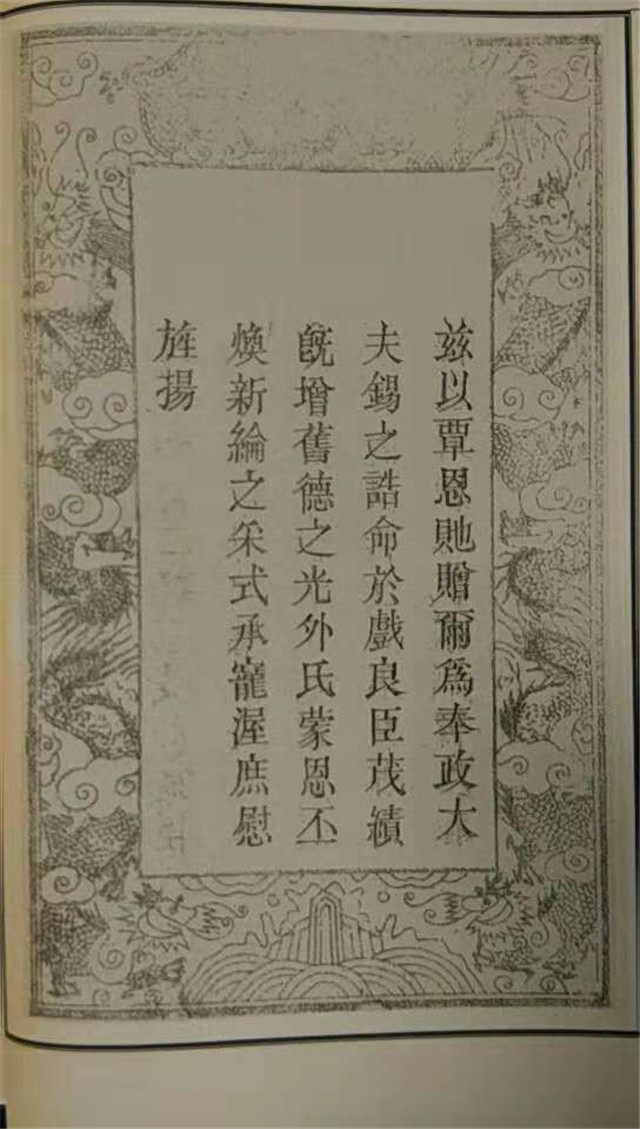 兹以覃恩貤贈爾爲奉政大
夫錫之誥命於戲良臣茂績
旣增舊德之光外氏蒙恩丕
煥新綸之采式承寵渥庶慰
旌揚